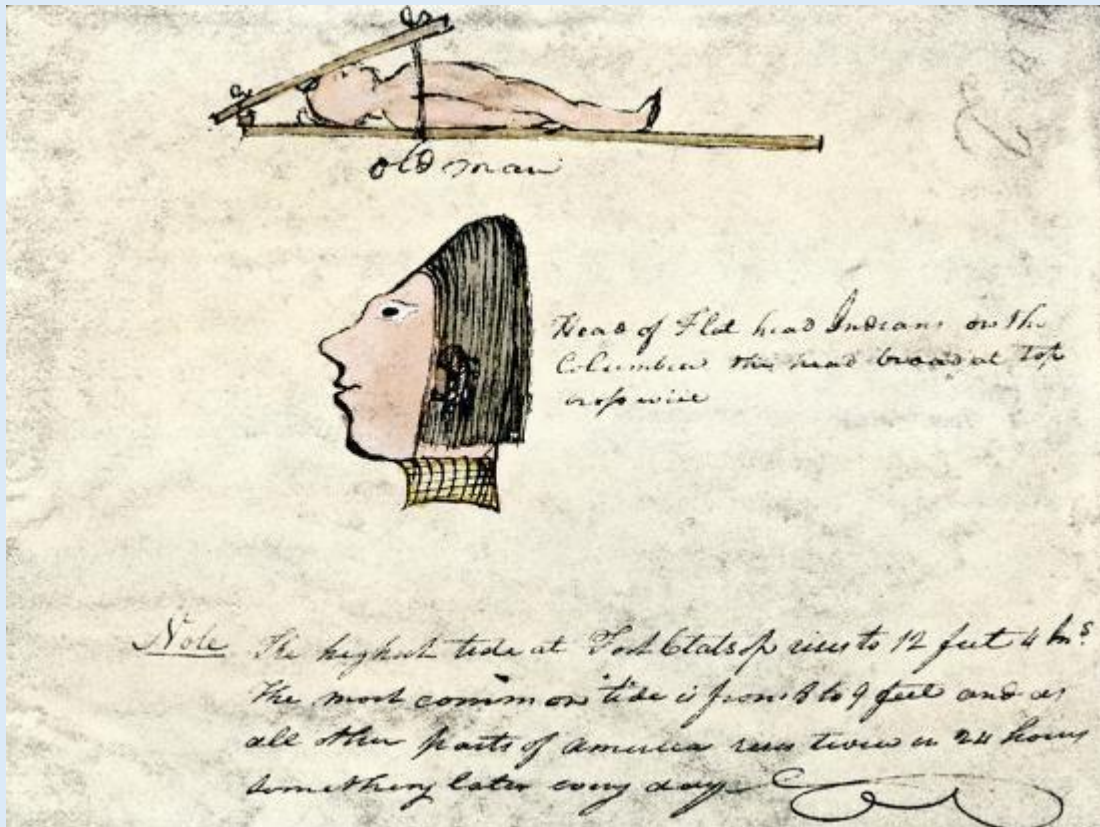 old man
Head of Flat head Indians on the
Columbia the head broad at Top
crosswise
Note The highest tide at Fort Clatsop rises to 12 feet 4 Ins
the most common tide is from 8 to 9 feet and as
all other parts of america rises twice in 24 hours
something later every day